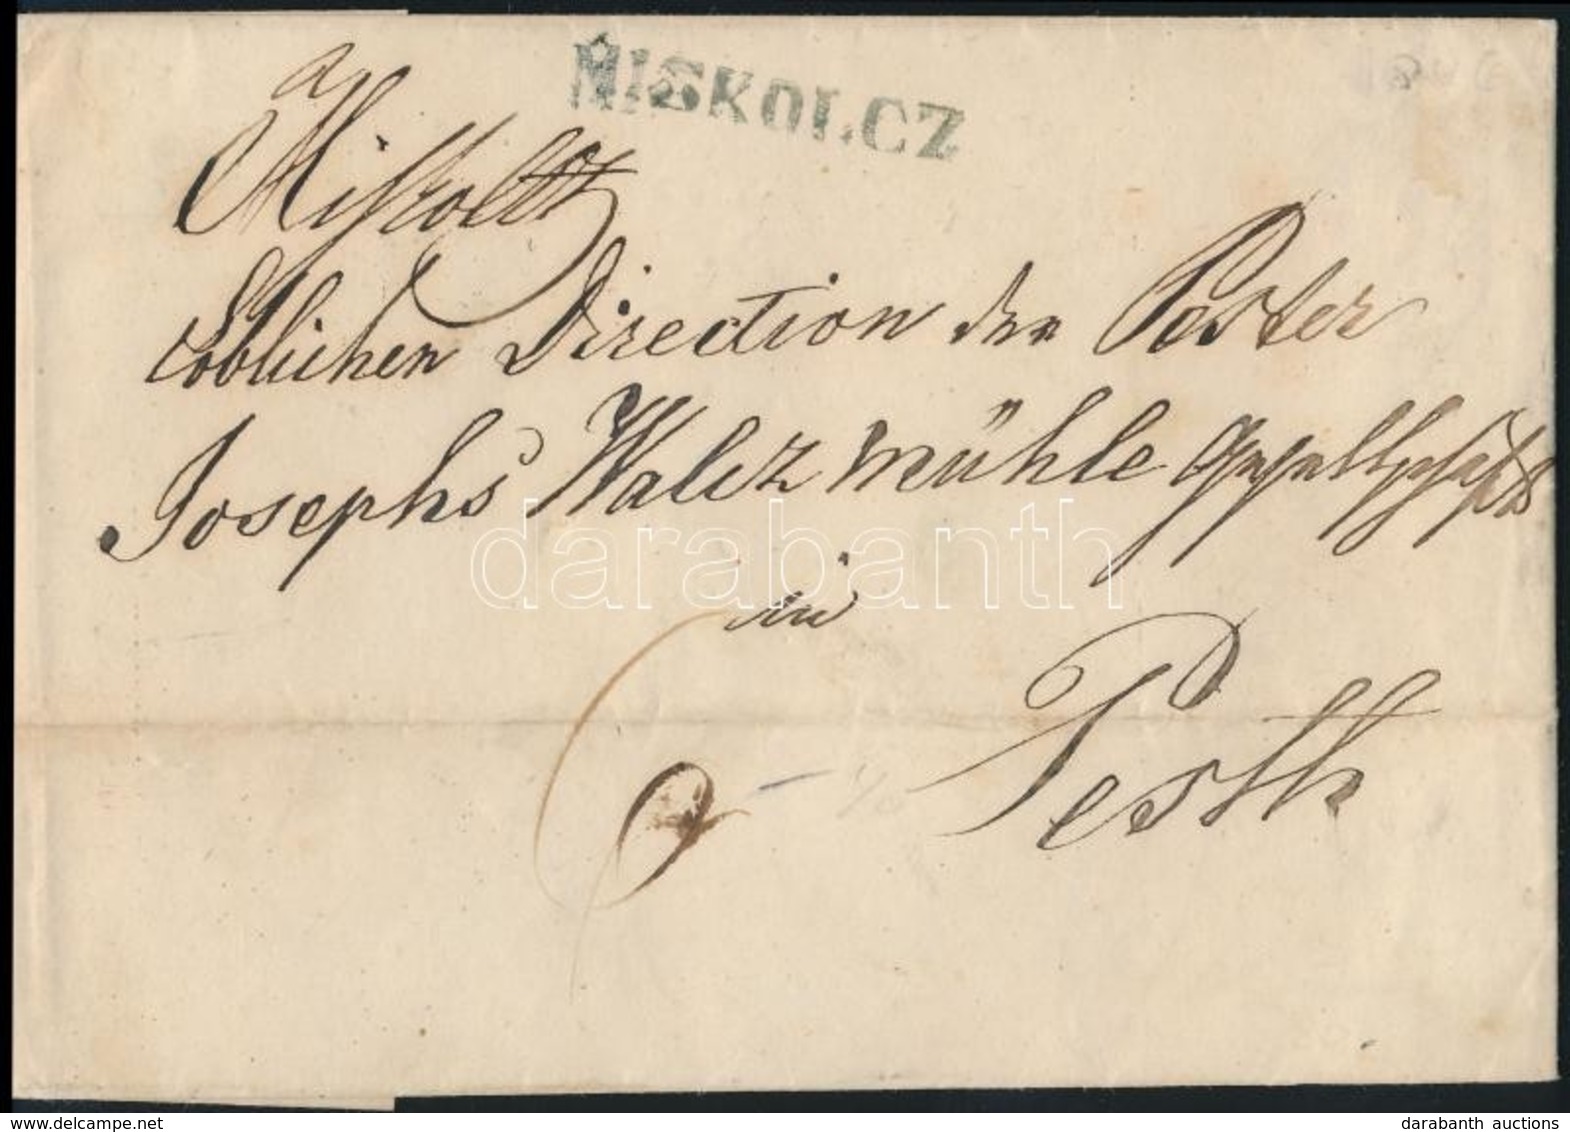 MISKOLCZ
a
Miskoltz
Löblichen Direction der Pester
Josephs Walzmühle Gesellschaft
in
Pesth
6
darabanth
delcampe.net
darabanth auctions